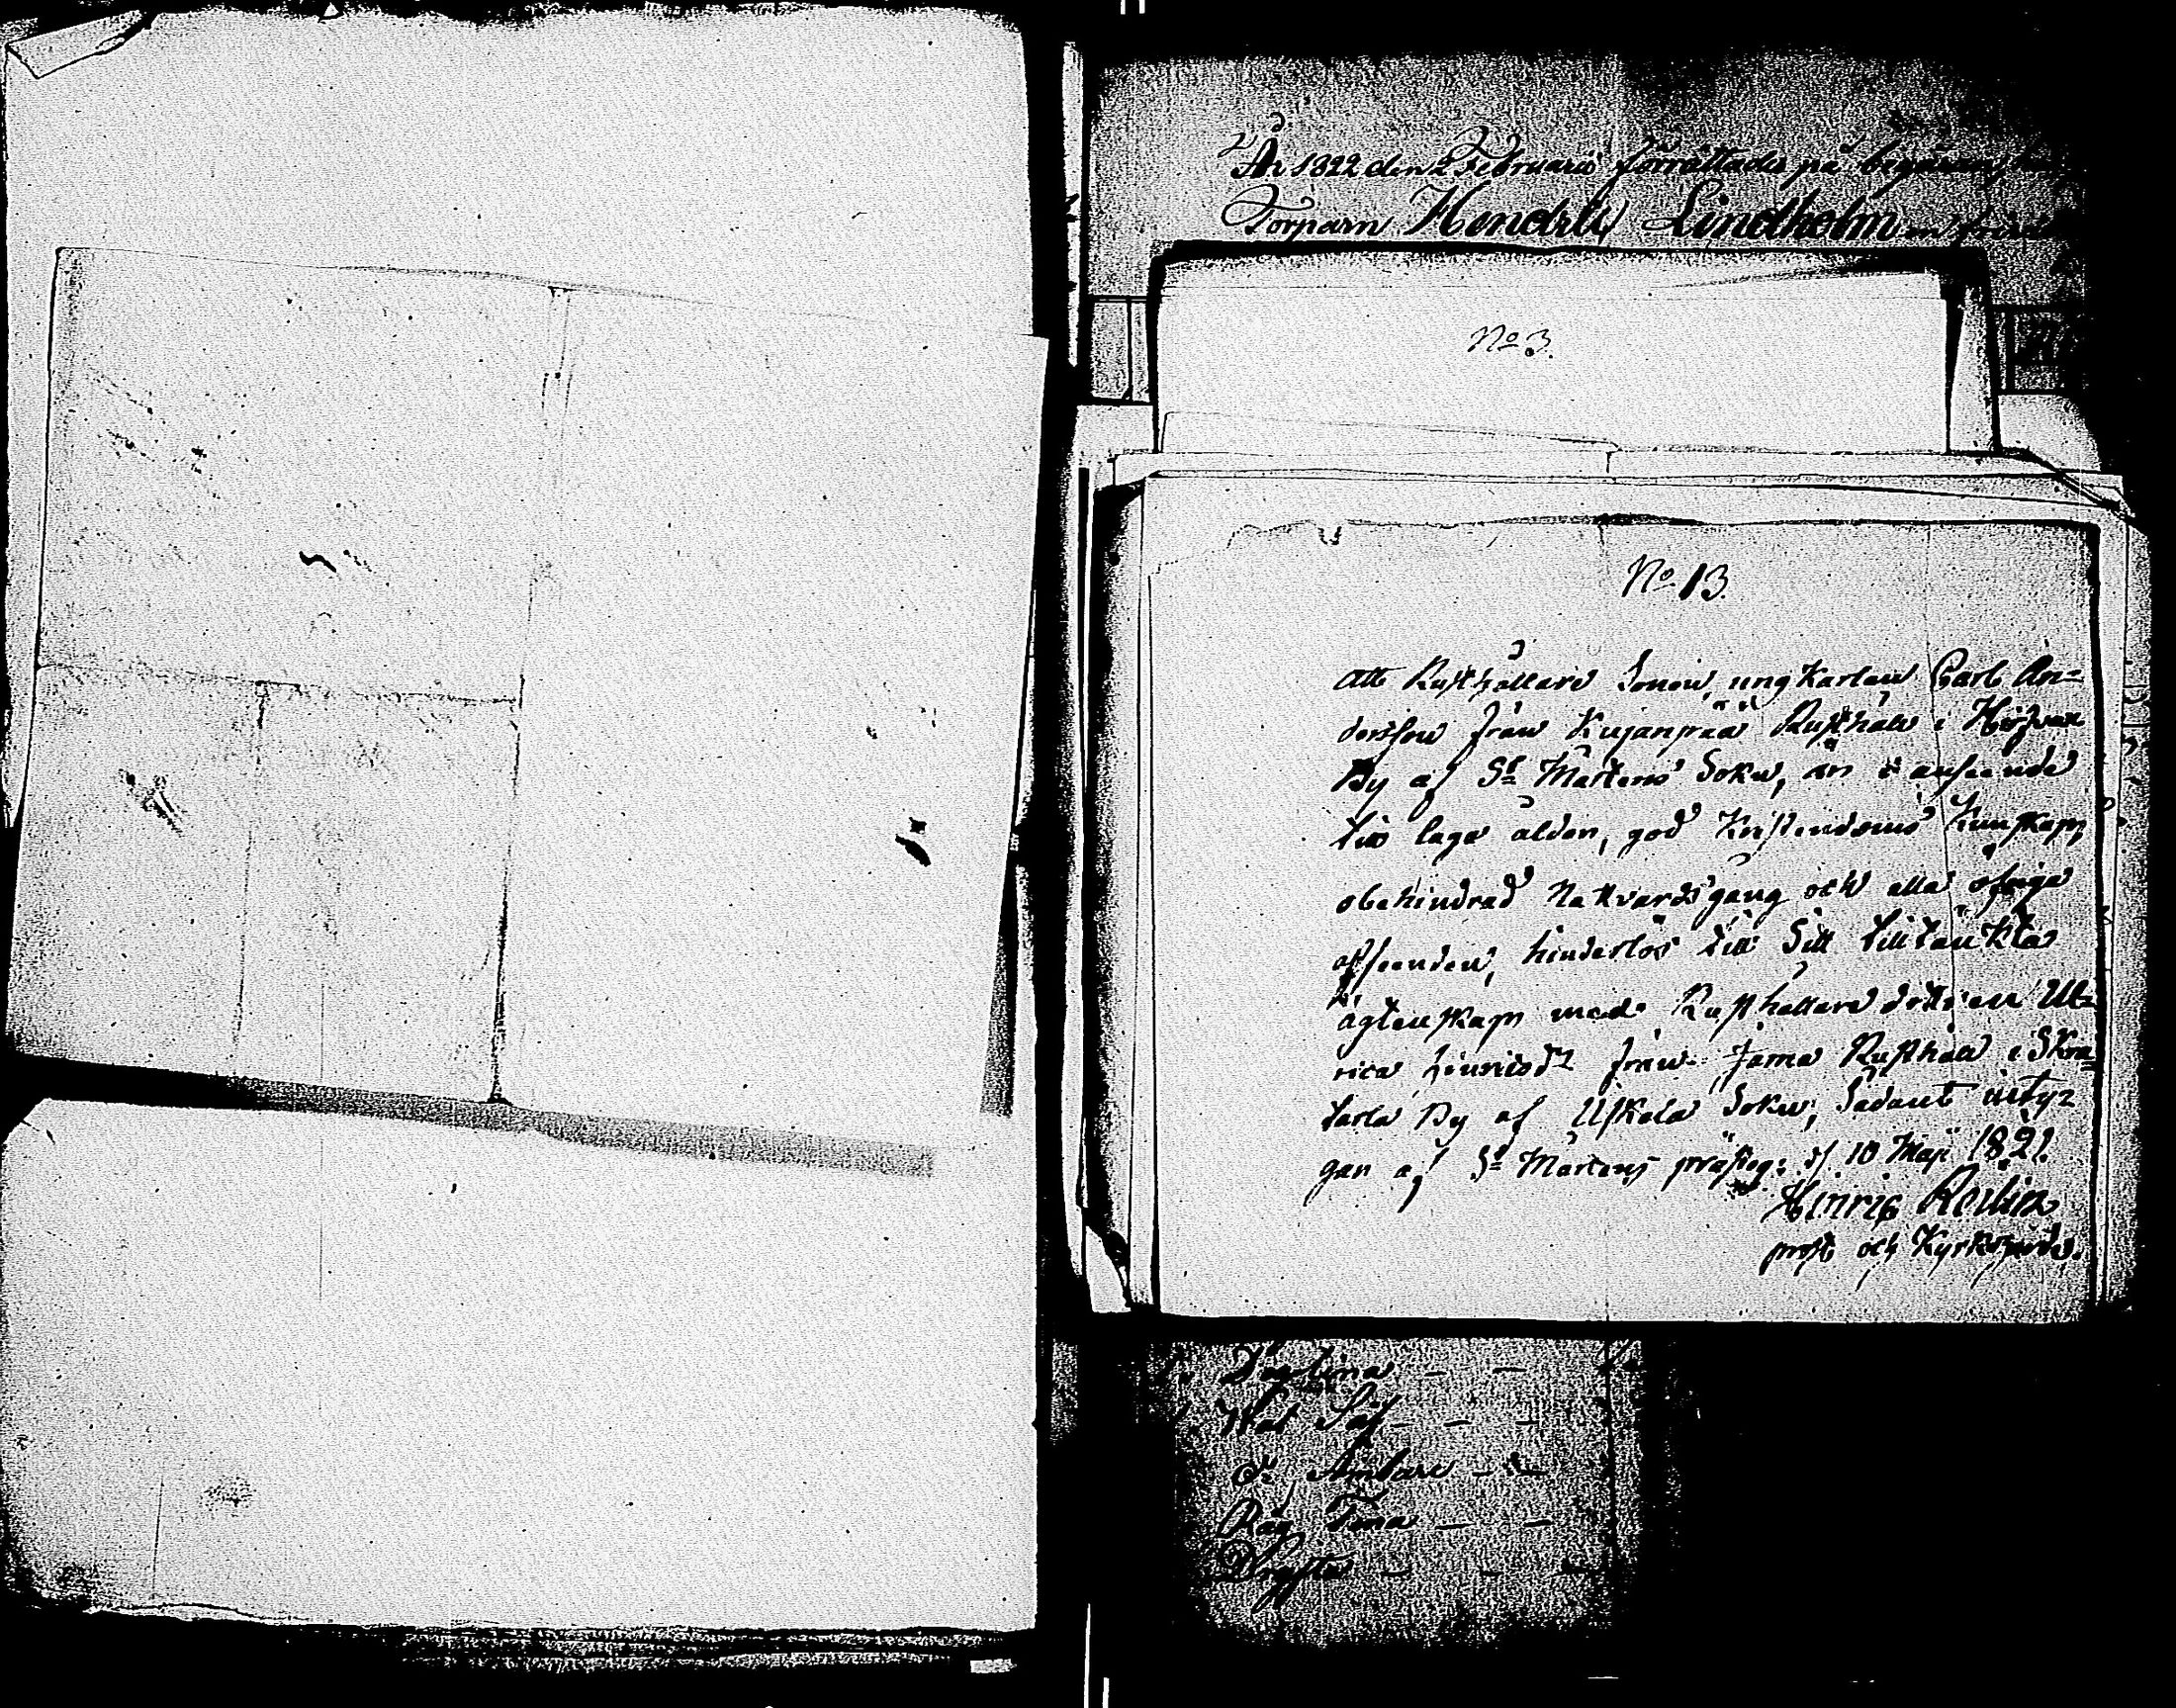 År 1822 den 2 Februarii förrättades på begäran
Torparn Hendrik Lindholm
No 3.
No 13.
Att Rusthållare Sonen, ungkarlen Carl An=
dersson från Kujanpää Rusthåll i
By af St Mårtens Sokn, är i anseende
till laga ålder, god Kristendoms Kunskap,
obehindrad Nattvardsgång och alla öfriga
afseenden, hinderlös till Sitt tilltänkta
ägtenskap med Rusthållare dottren Ul=
rica Hinricsdr från Jama Rusthåll i Skra=
tarla By af Uskela Sokn; Sådant intyg=
gar af St Mårtens prästeg: d. 10 Maji 1821.
Hinric
prost och Kyrkoherde.
Wat Så
dº Ämbare
Råg Tina